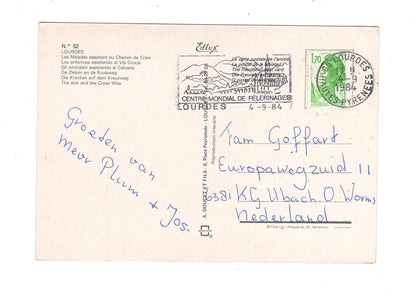 N.° 52
LOURDES
Les Malades assistant au Chemin de Croix
Los enfermos asistiendo al Via Crucis
Gli ammalati assistendo al Calvario
De Zieken en de Kruisweg
Die Kranken auf dem Kreuzweg
The sick and the Cross Way
Ellux
CENTRE MONDIAL DE PELERINAGES
LOURDES 4-9-84
1,70
LOURDES
1984
HTES PYRENEES
Reproduction interdite
A. DOUCET ET FILS - 6, Place Peyramale - LOURDES
Groeten van
Mevr Plum & Jos.
Fam Goffart
Europaweg zuid 11
6381 KG Ubach O. Worms
Nederland